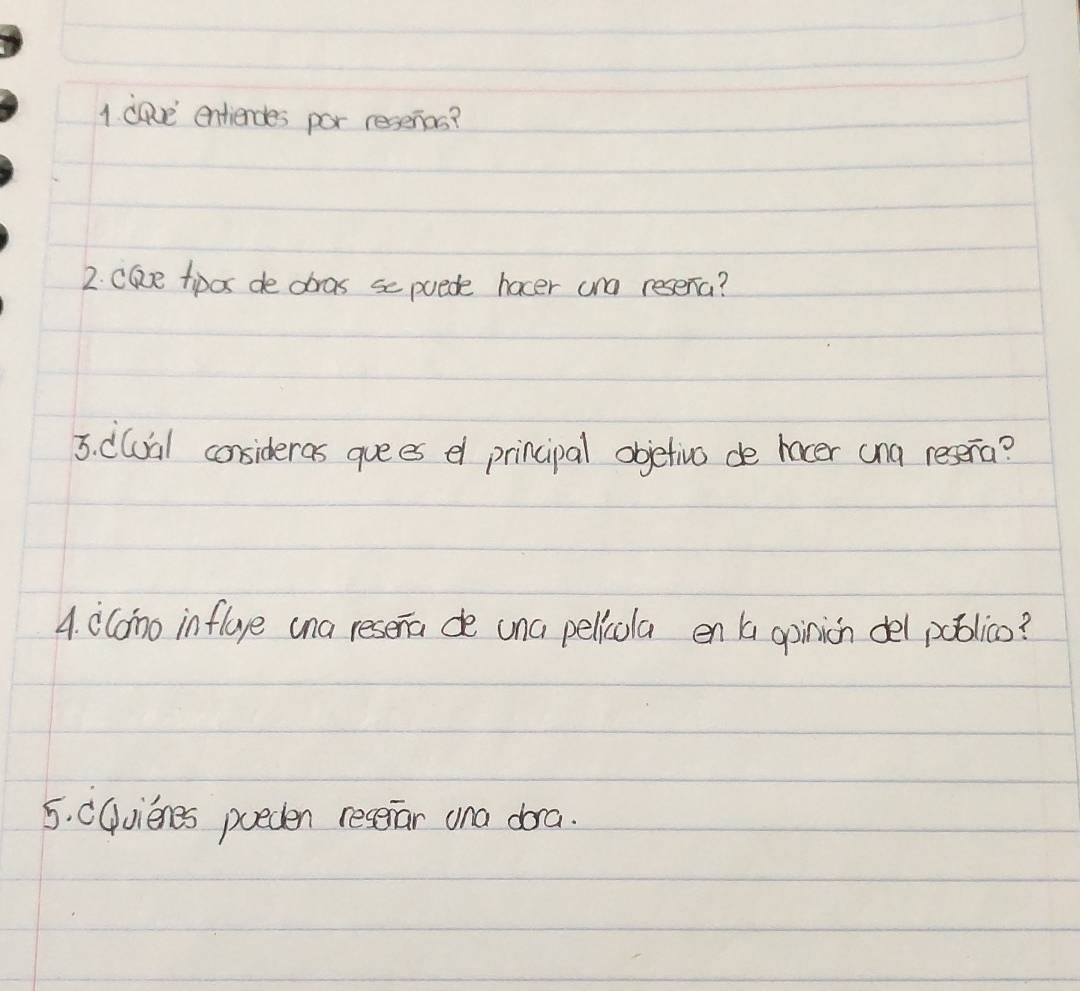 1. ¿Qué entiendes por reseñas?
2. ¿Que tipos de obras se puede hacer una reseña?
3. ¿Cuál consideras que es el principal objetivo de hacer una reseña?
4. ¿Cómo influye una reseña de una película en la opinión del público?
5. ¿Quiénes pueden reseñar una obra.